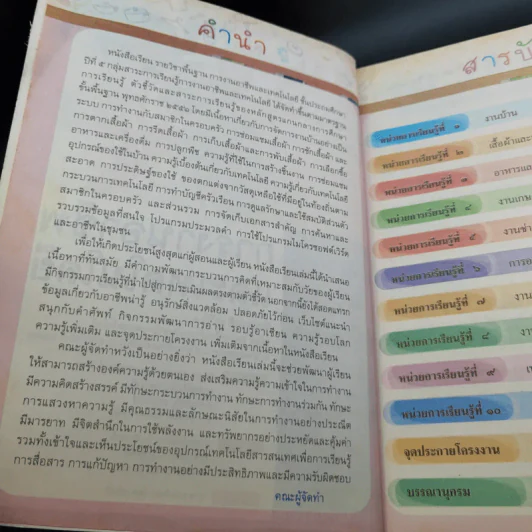 คำนำ
หนังสือเรียน รายวิชาพื้นฐาน การงานอาชีพและเทคโนโลยี ชั้นประถมศึกษา
ปีที่ ๕ กลุ่มสาระการเรียนรู้การงานอาชีพและเทคโนโลยี ได้จัดทำขึ้นตามมาตรฐาน
การเรียนรู้ ตัวชี้วัดและสาระการเรียนรู้ของหลักสูตรแกนกลางการศึกษา
ขั้นพื้นฐาน พุทธศักราช ๒๕๕๑ โดยมีเนื้อหาเกี่ยวกับการจัดการงานบ้านอย่างเป็น
ระบบ การทำงานกับสมาชิกในครอบครัว การซ่อมแซมเสื้อผ้า การซักเสื้อผ้า และ
การตากเสื้อผ้า การรีดเสื้อผ้า การเก็บเสื้อผ้าและการพับเสื้อผ้า การเลือกซื้อ
อาหารและเครื่องดื่ม การปลูกพืช ความรู้ที่ใช้ในการสร้างชิ้นงาน การซ่อมแซม
อุปกรณ์ของใช้ในบ้าน ความรู้เบื้องต้นเกี่ยวกับเทคโนโลยี ความรู้เกี่ยวกับเทคโนโลยี
สะอาด การประดิษฐ์ของใช้ ของตกแต่งจากวัสดุเหลือใช้ที่มีอยู่ในท้องถิ่นตาม
กระบวนการเทคโนโลยี การทำบัญชีครัวเรือน การดูแลรักษาและใช้สมบัติส่วนตัว
สมาชิกในครอบครัว และส่วนรวม การจัดเก็บเอกสารสำคัญ การค้นหาและ
รวบรวมข้อมูลที่สนใจ โปรแกรมประมวลคำ การใช้โปรแกรมไมโครซอฟต์เวิร์ด
และอาชีพในชุมชน
เพื่อให้เกิดประโยชน์สูงสุดแก่ผู้สอนและผู้เรียน หนังสือเรียนเล่มนี้ได้นำเสนอ
เนื้อหาที่ทันสมัย มีคำถามพัฒนากระบวนการคิดที่เหมาะสมกับวัยของผู้เรียน
มีกิจกรรมการเรียนรู้ที่นำไปสู่การประเมินผลตรงตามตัวชี้วัด นอกจากนี้ยังได้สอดแทรก
ข้อมูลเกี่ยวกับอาชีพน่ารู้ อนุรักษ์สิ่งแวดล้อม ปลอดภัยไว้ก่อน เว็บไซต์แนะนำ
สนุกกับคำศัพท์ กิจกรรมพัฒนาการอ่าน รอบรู้อาเซียน ความรู้รอบโลก
ความรู้เพิ่มเติม และจุดประกายโครงงาน เพิ่มเติมจากเนื้อหาในหนังสือเรียน
คณะผู้จัดทำหวังเป็นอย่างยิ่งว่า หนังสือเรียนเล่มนี้จะช่วยพัฒนาผู้เรียน
ให้สามารถสร้างองค์ความรู้ด้วยตนเอง ส่งเสริมความรู้ความเข้าใจในการทำงาน
มีความคิดสร้างสรรค์ มีทักษะกระบวนการทำงาน ทักษะการทำงานร่วมกัน ทักษะ
การแสวงหาความรู้ มีคุณธรรมและลักษณะนิสัยในการทำงานอย่างประณีต
มีมารยาท มีจิตสำนึกในการใช้พลังงาน และทรัพยากรอย่างประหยัดและคุ้มค่า
รวมทั้งเข้าใจและเห็นประโยชน์ของอุปกรณ์เทคโนโลยีสารสนเทศเพื่อการเรียนรู้
การสื่อสาร การแก้ปัญหา การทำงานอย่างมีประสิทธิภาพและมีความรับผิดชอบ
คณะผู้จัดทำ
หน่วยการเรียนรู้ที่ ๑ งานบ้าน
หน่วยการเรียนรู้ที่ ๒ เสื้อผ้าและ
หน่วยการเรียนรู้ที่ ๓ อาหารและ
หน่วยการเรียนรู้ที่ ๔ งานเกษ
หน่วยการเรียนรู้ที่ ๕ งานช่า
หน่วยการเรียนรู้ที่ ๖ การออ
หน่วยการเรียนรู้ที่ ๗ งาน
หน่วยการเรียนรู้ที่ ๘ งาน
หน่วยการเรียนรู้ที่ ๙
หน่วยการเรียนรู้ที่ ๑๐
จุดประกายโครงงาน
บรรณานุกรม